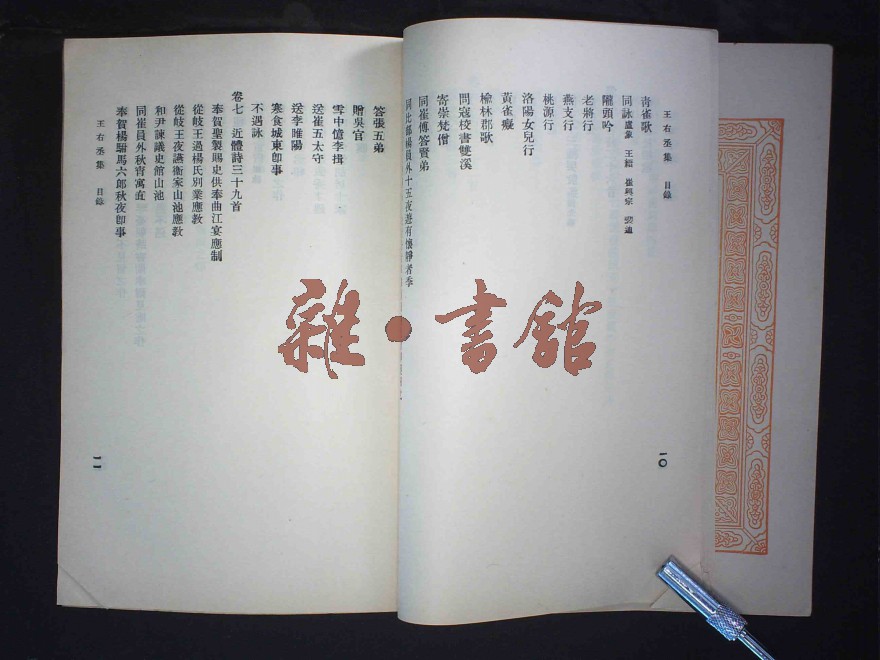 王右丞集 目錄
青雀歌
同詠 盧象 王縉 崔興宗 裴迪
隴頭吟
老將行
燕支行
桃源行
洛陽女兒行
黃雀癡
榆林郡歌
問寇校書雙溪
寄崇梵僧
同崔傅答賢弟
同比部楊員外十五夜遊有懷靜者季
一〇
答張五弟
贈吳官
雪中憶李揖
送崔五太守
送李睢陽
寒食城東卽事
不遇詠
卷七 近體詩三十九首
奉賀聖製賜史供奉曲江宴應制
從岐王過楊氏別業應敎
從岐王夜讌衞家山池應敎
和尹諫議史館山池
同崔員外秋宵寓直
奉賀楊駙馬六郎秋夜卽事
王右丞集 目錄
一一
雜·書館